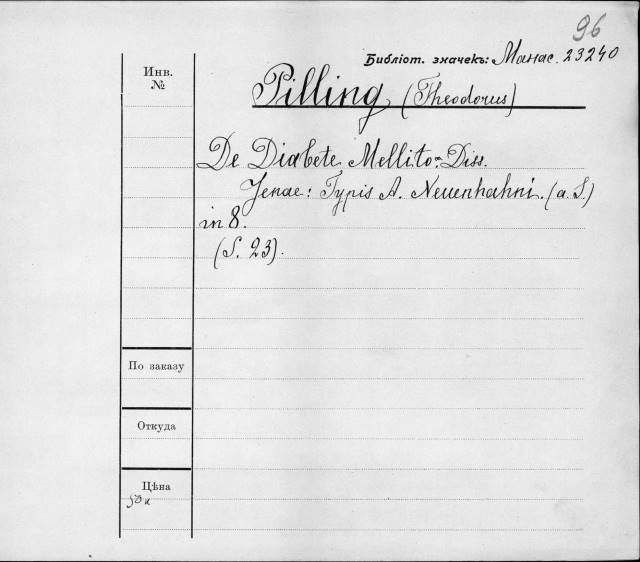 96
Библіот. значекъ: Манас. 23240
Инв.
№
Pilling (Theodorus)
De Diabete Mellito. Diss.
Jenae: Typis A. Neuenhahni. (a. S.)
in 8.
(S. 23).
По заказу
Откуда
Цѣна